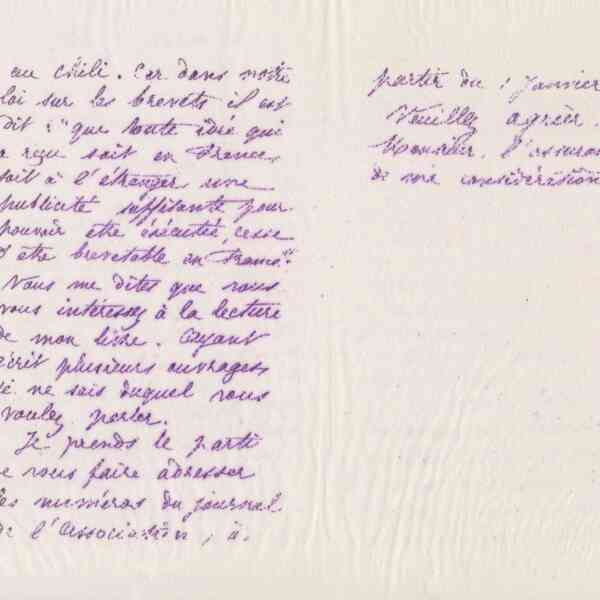 au Chili. Car dans notre
loi sur les brevets il est
dit : "que toute idée qui
a reçu soit en France,
soit à l'étranger une
publicité suffisante pour
pouvoir etre éxécutée, cesse
d'etre brevetable en France."
Vous me dites que vous
vous intéressez à la lecture
de mon livre. Ayant
écrit plusieurs ouvrages
je ne sais duquel vous
voulez parler.
Je prends le parti
de vous faire adresser
les numéros du journal
de l'Association, à
partir du 1 Janvier
Veuillez agréer
Monsieur, l'assuran
de ma considération